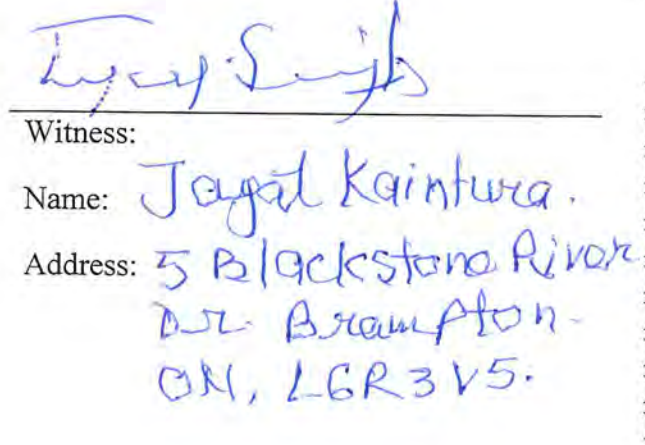 Singh
Witness:
Name: Jagat Kaintura.
Address: 5 Blackstone River
Dr. Brampton.
ON, L6R3V5.